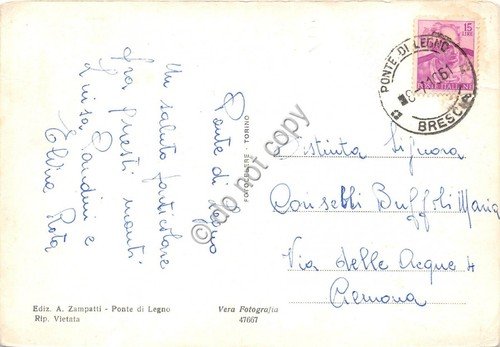 Ponte di Legno
Un saluto particolare
fra questi monti
Luisa Bandini e
Elvira Rota
Distinta Signora
Consebbi Buffoli Maria
Via delle Acque 4
Cremona
15
LIRE
POSTE ITALIANE
PONTE DI LEGNO
BRESCIA
FOTOCELERE - TORINO
Ediz. A. Zampatti - Ponte di Legno
Rip. Vietata
Vera Fotografia
47667
do not copy